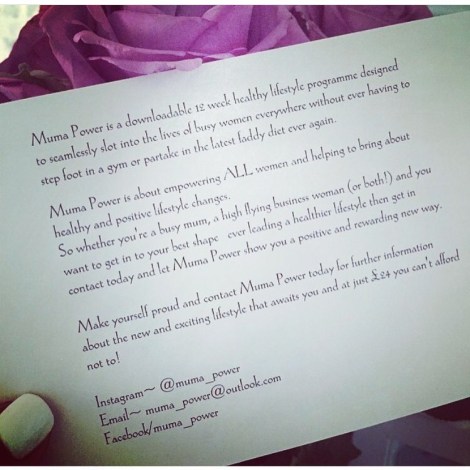 Muma Power is a downloadable 12 week healthy lifestyle programme designed
to seamlessly slot into the lives of busy women everywhere without ever having to
step foot in a gym or partake in the latest faddy diet ever again.
Muma Power is about empowering ALL women and helping to bring about
healthy and positive lifestyle changes.
So whether you're a busy mum, a high flying business woman (or both!) and you
want to get in to your best shape ever leading a healthier lifestyle then get in
contact today and let Muma Power show you a positive and rewarding new way.
Make yourself proud and contact Muma Power today for further information
about the new and exciting lifestyle that awaits you and at just £24 you can't afford
not to!
Instagram~ @muma_power
Email~ muma_power@outlook.com
Facebook/muma_power